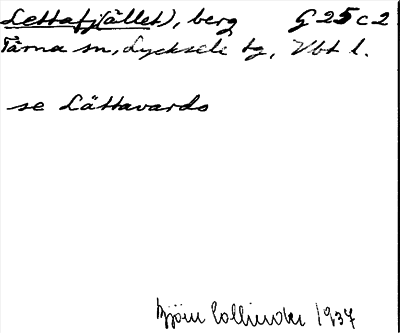 Lettafj(ället), berg G 25 c 2
Tärna sn, Lycksele tg, Vbt l.
se Lättavardo
Björn Collinder 1937